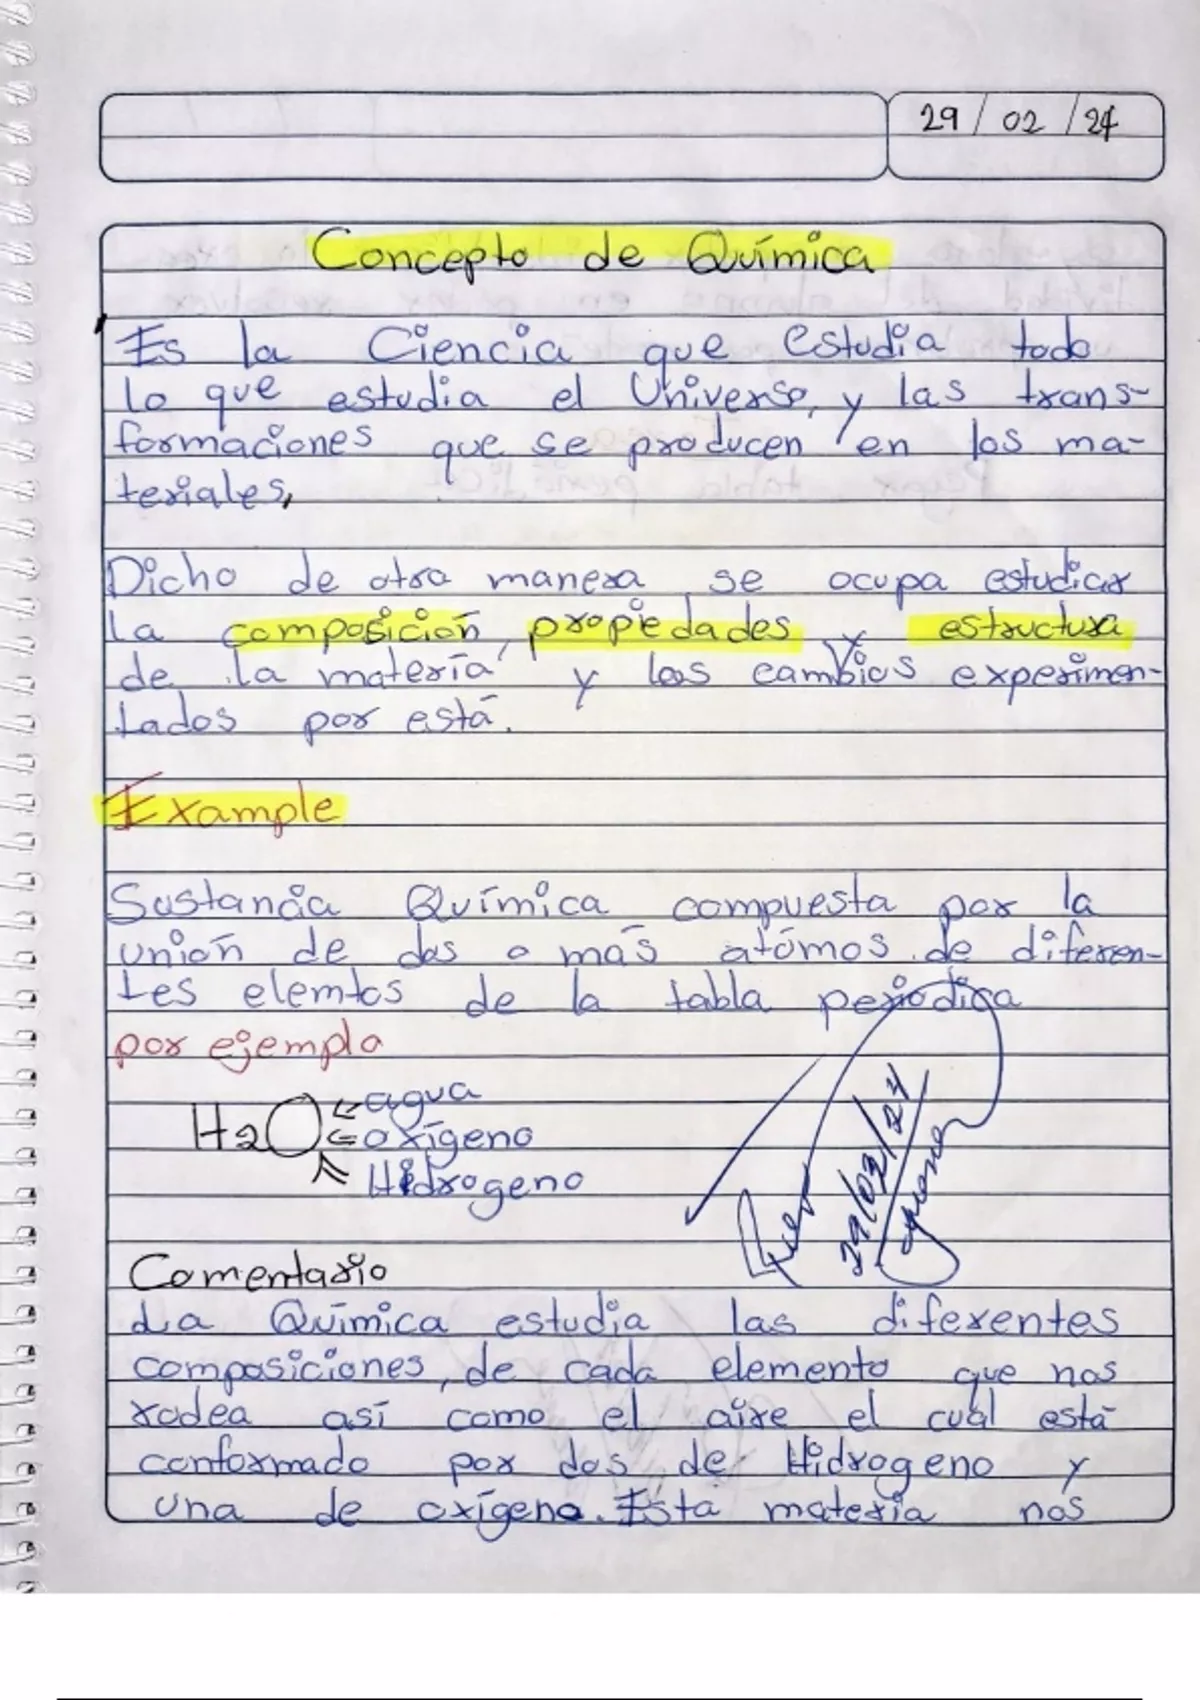 29/02/24
Concepto de Química
Es la Ciencia que estudia todo
lo que estudia el Universo, y las trans-
formaciones que se producen en los ma-
teriales,
Dicho de otra manera se ocupa estudiar
la composición, propiedades y estructura
de la matería y los cambios experimen-
tados por está.
Example
Sustancia Química compuesta por la
unión de dos o más atómos de diferen-
tes elemtos de la tabla periodica
por ejemplo
H2O ← agua
← oxígeno
Hidrogeno
29/02/24
Comentario
La Química estudia las diferentes
composiciones, de cada elemento que nos
rodea así como el aire el cuál está
conformado por dos de Hidrogeno y
una de oxígeno. Esta materia nos